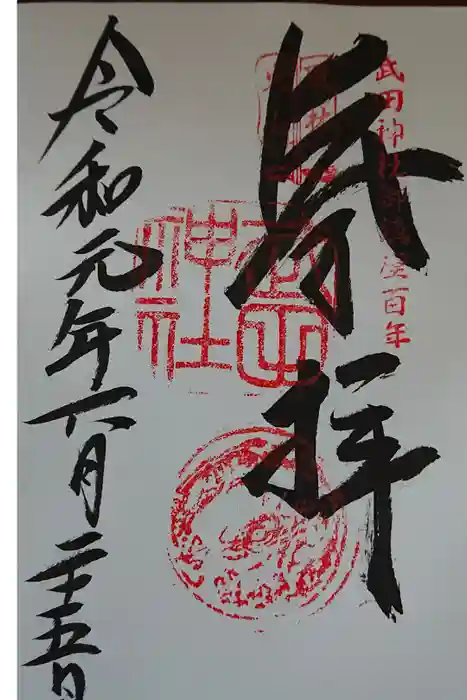 武田神社御鎮座百年
奉拝
武田神社
令和元年六月二十五日